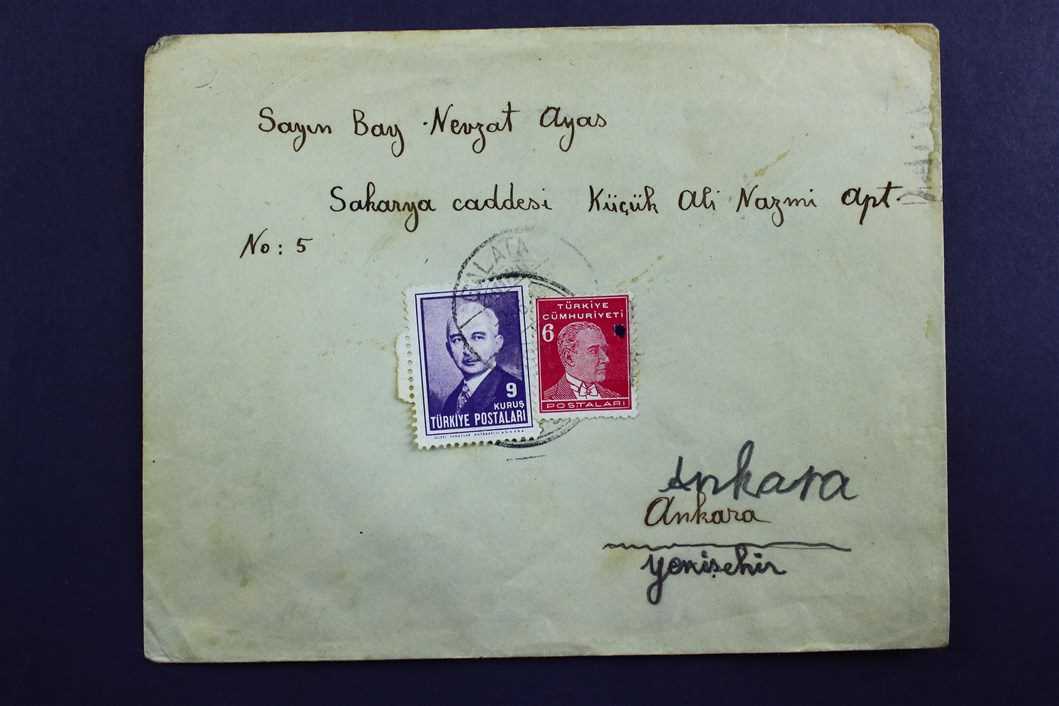 Sayın Bay Nevzat Ayas
Sakarya caddesi Küçük Ali Nazmi Apt.
No: 5
GALATA
9
KURUŞ
TÜRKİYE POSTALARI
TÜRKİYE
CÜMHURİYETİ
6
POSTALARI
Ankara
Ankara
Yenişehir